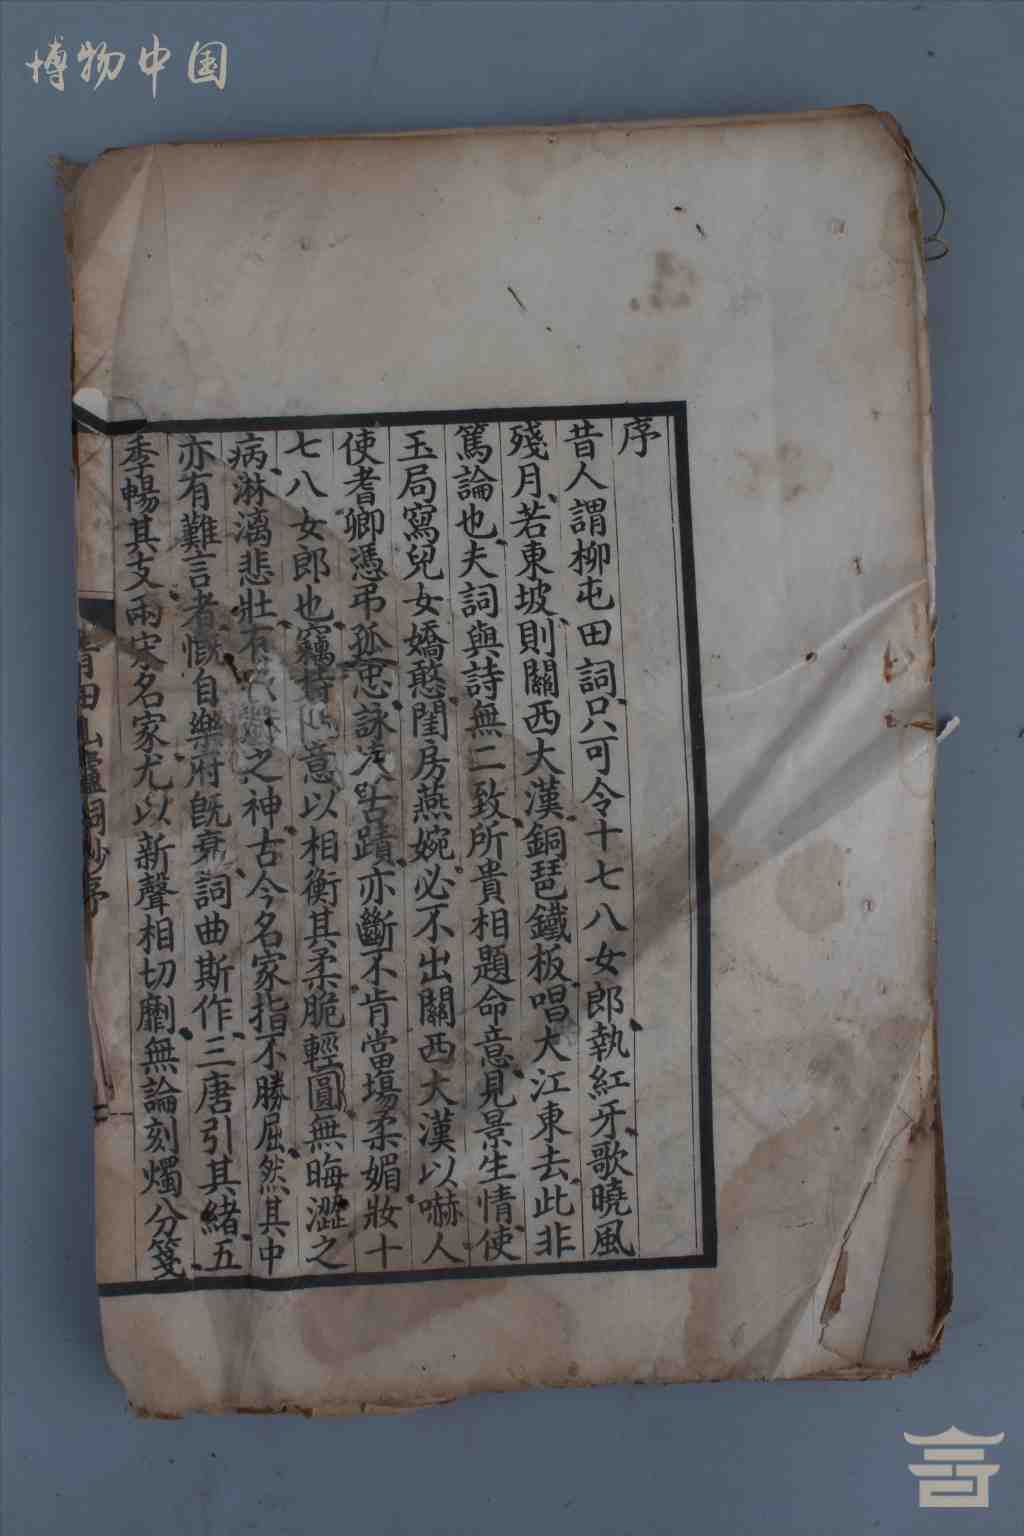 博物中国
序
昔人謂柳屯田詞、只可令十七八女郎、執紅牙、歌曉風
殘月、若東坡、則關西大漢、銅琶鐵板、唱大江東去、此非
篤論也、夫詞與詩無二致、所貴相題命意、見景生情、使
玉局寫兒女嬌憨、閨房燕婉、必不出關西大漢以嚇人、
使耆卿憑弔孤忠、詠蹟、亦斷不肯當場柔媚、妝十
七八女郎也、竊持意以相衡、其柔脆輕圓、無晦澀之
病、淋漓悲壯、有之神、古今名家、指不勝屈、然其中
亦有難言者、慨自樂府旣衰、詞曲斯作、三唐引其緒、五
季暢其支、兩宋名家、尤以新聲相切劘、無論刻燭分箋、
青田山廬詞鈔序